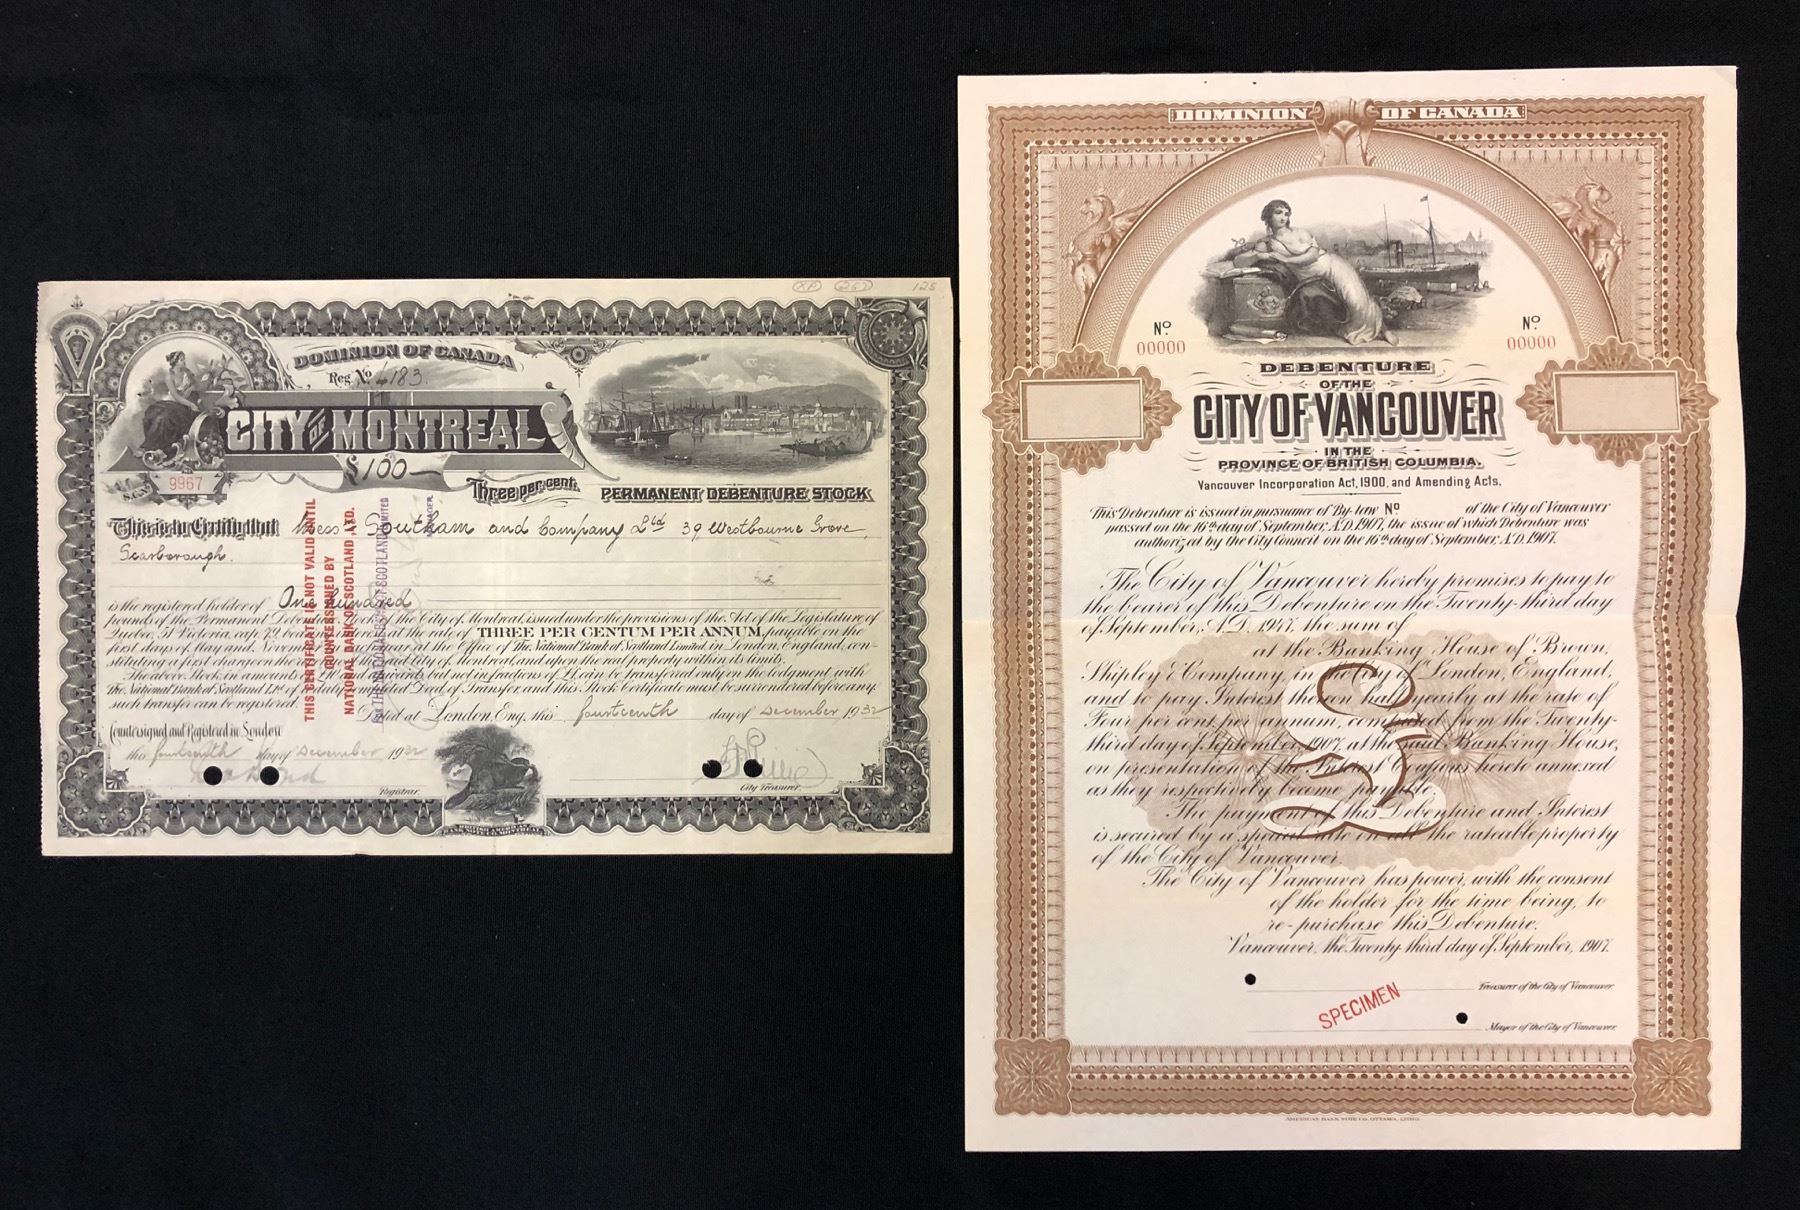 XP 257 125
DOMINION OF CANADA
Reg. No. 4183.
CITY OF MONTREAL
£100
9967
Three per cent. PERMANENT DEBENTURE STOCK
This is to Certify that Mess Southam and Company Ltd 39 Westbourne Grove,
Scarborough.
is the registered holder of One Hundred
pounds of the Permanent Debenture Stock of the City of Montreal, issued under the provisions of the Act of the Legislature of
Quebec, 51 Victoria, cap. 79, bearing interest at the rate of THREE PER CENTUM PER ANNUM, payable on the
first days of May and November in each year at the Office of The National Bank of Scotland Limited in London, England, con-
stituting a first charge on the said City of Montreal, and upon the real property within its limits.
The above Stock in amounts of £1 or upwards but not in fractions of £1 can be transferred only on the lodgment with
The National Bank of Scotland Ltd. of Deed of Transfer, and this Stock Certificate must be surrendered before any
such transfer can be registered.
Dated at London, Eng. this fourteenth day of December 1932
Countersigned and Registered in London
this fourteenth day of December 1932
Registrar.
City Treasurer.
THIS CERTIFICATE IS NOT VALID UNTIL
COUNTERSIGNED BY
NATIONAL BANK OF SCOTLAND LTD.
FOR THE NATIONAL BANK OF SCOTLAND LIMITED
MANAGER
DOMINION OF CANADA
No. 00000
No. 00000
DEBENTURE
OF THE
CITY OF VANCOUVER
IN THE
PROVINCE OF BRITISH COLUMBIA.
Vancouver Incorporation Act, 1900, and Amending Acts.
This Debenture is issued in pursuance of By-law No. of the City of Vancouver
passed on the 16th day of September, A.D. 1907, the issue of which Debenture was
authorized by the City Council on the 16th day of September, A.D. 1907.
The City of Vancouver hereby promises to pay to
the bearer of this Debenture on the Twenty-third day
of September, A.D. 1947, the sum of
at the Banking House of Brown,
Shipley & Company, in the City of London, England,
and to pay Interest thereon half yearly at the rate of
Four per cent. per annum, computed from the Twenty-
third day of September, 1907, at the said Banking House,
on presentation of the Interest Coupons hereto annexed
as they respectively become payable.
The payment of this Debenture and Interest
is secured by a special rate on all the rateable property
of the City of Vancouver.
The City of Vancouver has power, with the consent
of the holder for the time being, to
re-purchase this Debenture.
Vancouver, the Twenty-third day of September, 1907.
Treasurer of the City of Vancouver.
SPECIMEN
Mayor of the City of Vancouver.
AMERICAN BANK NOTE CO. OTTAWA, LITHO.